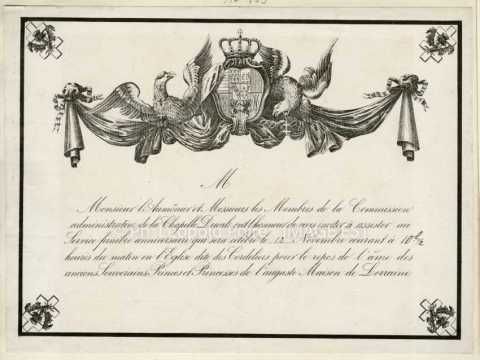 M
Monsieur l'Aumônier et Messieurs les Membres de la Commission
administrative de la Chapelle Ducale ont l'honneur de vous inviter à assister au
Service funèbre anniversaire qui sera célébré le 12 Novembre courant à 10 h ½
heures du matin en l'Eglise dite des Cordeliers pour le repos de l'âme des
anciens Souverains, Princes et Princesses de l'auguste Maison de Lorraine